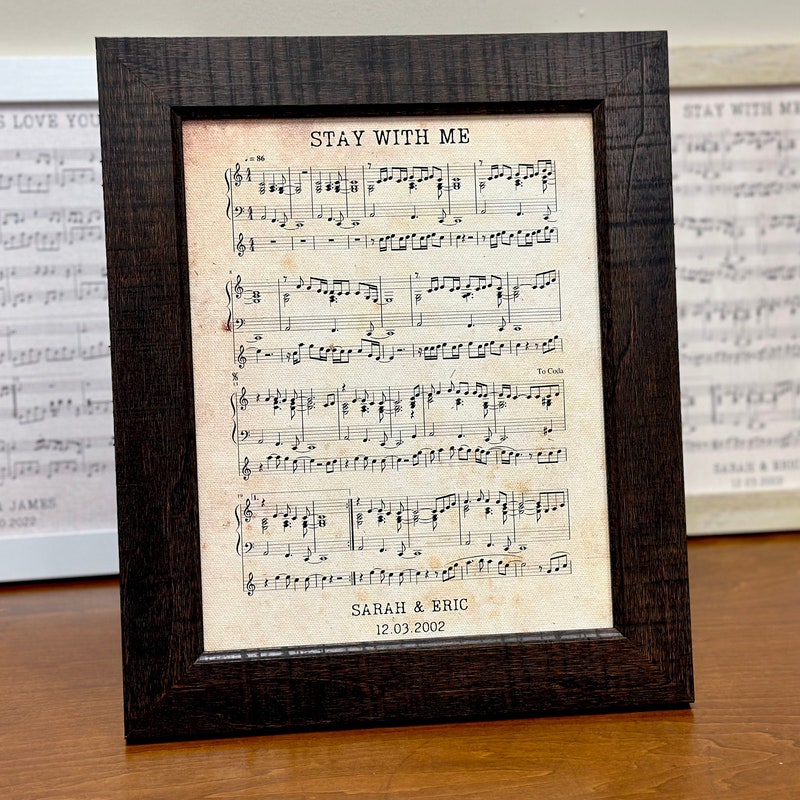 STAY WITH ME
♩ = 86
To Coda
1.
SARAH & ERIC
12.03.2002
S LOVE YOU
JAMES
0.2022
STAY WITH ME
SARAH & ERIC
12.03.2002